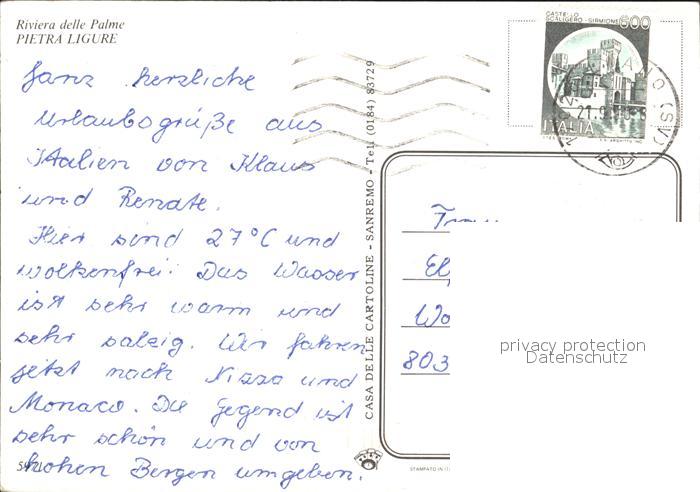 Riviera delle Palme
PIETRA LIGURE
Ganz herzliche
Urlaubsgrüße aus
Italien von Klaus
und Renate.
Hier sind 27°C und
wolkenfrei. Das Wasser
ist sehr warm und
sehr salzig. Wir fahren
jetzt nach Nizza und
Monaco. Die Gegend ist
sehr schön und von
hohen Bergen umgeben.
CASA DELLE CARTOLINE - SANREMO - Tel. (0184) 83729
CASTELLO
SCALIGERO - SIRMIONE
600
ITALIA
(SV)
803
privacy protection
Datenschutz
STAMPATO IN